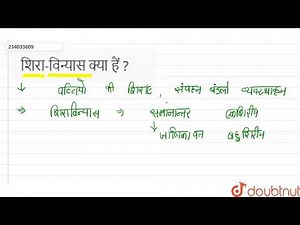 234033609
शिरा-विन्यास क्या हैं ?
↓ पत्तियो की शिराए, संवहन बंडलो व्यवस्थाक्रम
→ शिराविन्यास ⇒ समानान्तर
↓ जालिकावत
doubtnut